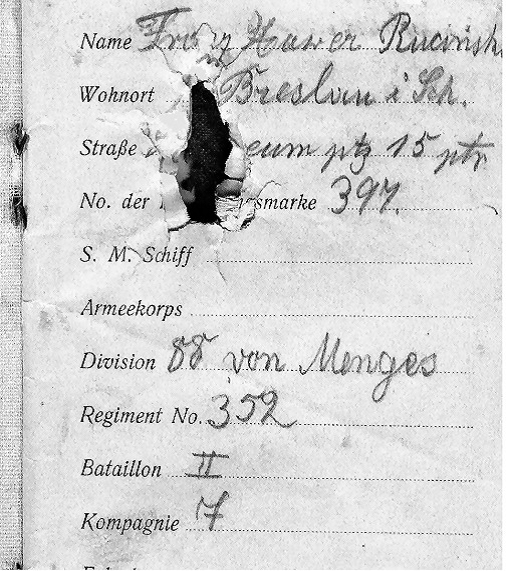 Name Franz Xaver
Wohnort Breslau i Sch.
Straße eum ptz 15 ptr
No. der smarke 397.
S. M. Schiff
Armeekorps
Division 88 von Menges
Regiment No. 352
Bataillon II
Kompagnie 7